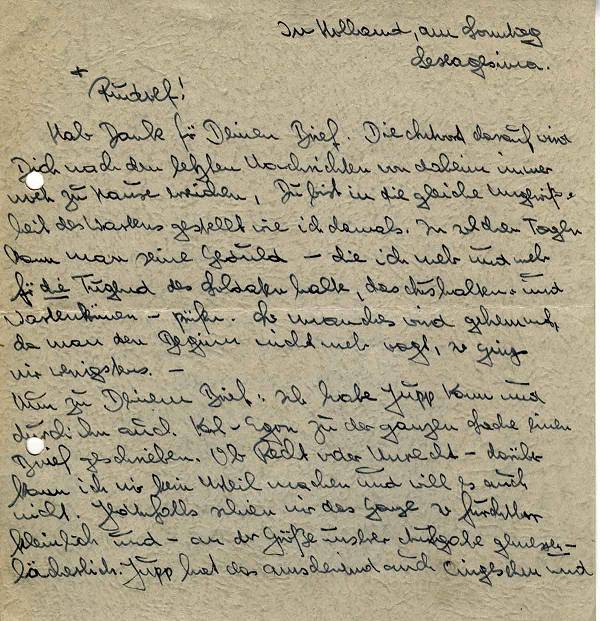 In Holland, am Sonntag
Sexagesima.
+
Rudolf!
Hab Dank für Deinen Brief. Die Antwort darauf wird
Dich nach den letzten Nachrichten von daheim immer
noch zu Hause erreichen, Du bist in die gleiche Ungewiß-
heit des Wartens gestellt wie ich damals. In solchen Tagen
kann man seine Geduld – die ich mehr und mehr
für die Tugend des Soldaten halte, das Aushalten- und
Wartenkönnen – prüfen. So manches wird gehemmt,
da man den Beginn nicht mehr wagt, so ging's
mir wenigstens. –
Nun zu Deinem Brief: ich habe Jupp Kann und
durch ihn auch Karl-Egon zu der ganzen Sache einen
Brief geschrieben. Ob Recht oder Unrecht – darüber
kann ich mir kein Urteil machen und will es auch
nicht. Jedenfalls schien mir das Ganze so furchtbar
kleinlich und – an der Größe unsrer Aufgabe gemessen –
lächerlich. Jupp hat das anscheinend auch eingesehen und